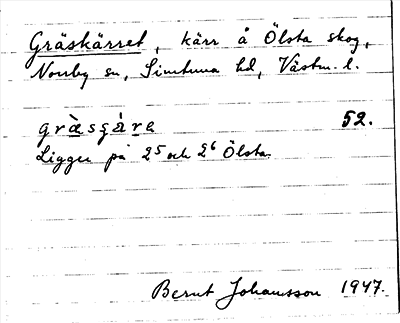 Gräskärret, kärr å Ölsta skog,
Norrby sn, Simtuna hd, Västm. l.
52.
Ligger på 2⁵ och 2⁶ Ölsta
Bernt Johansson 1947.